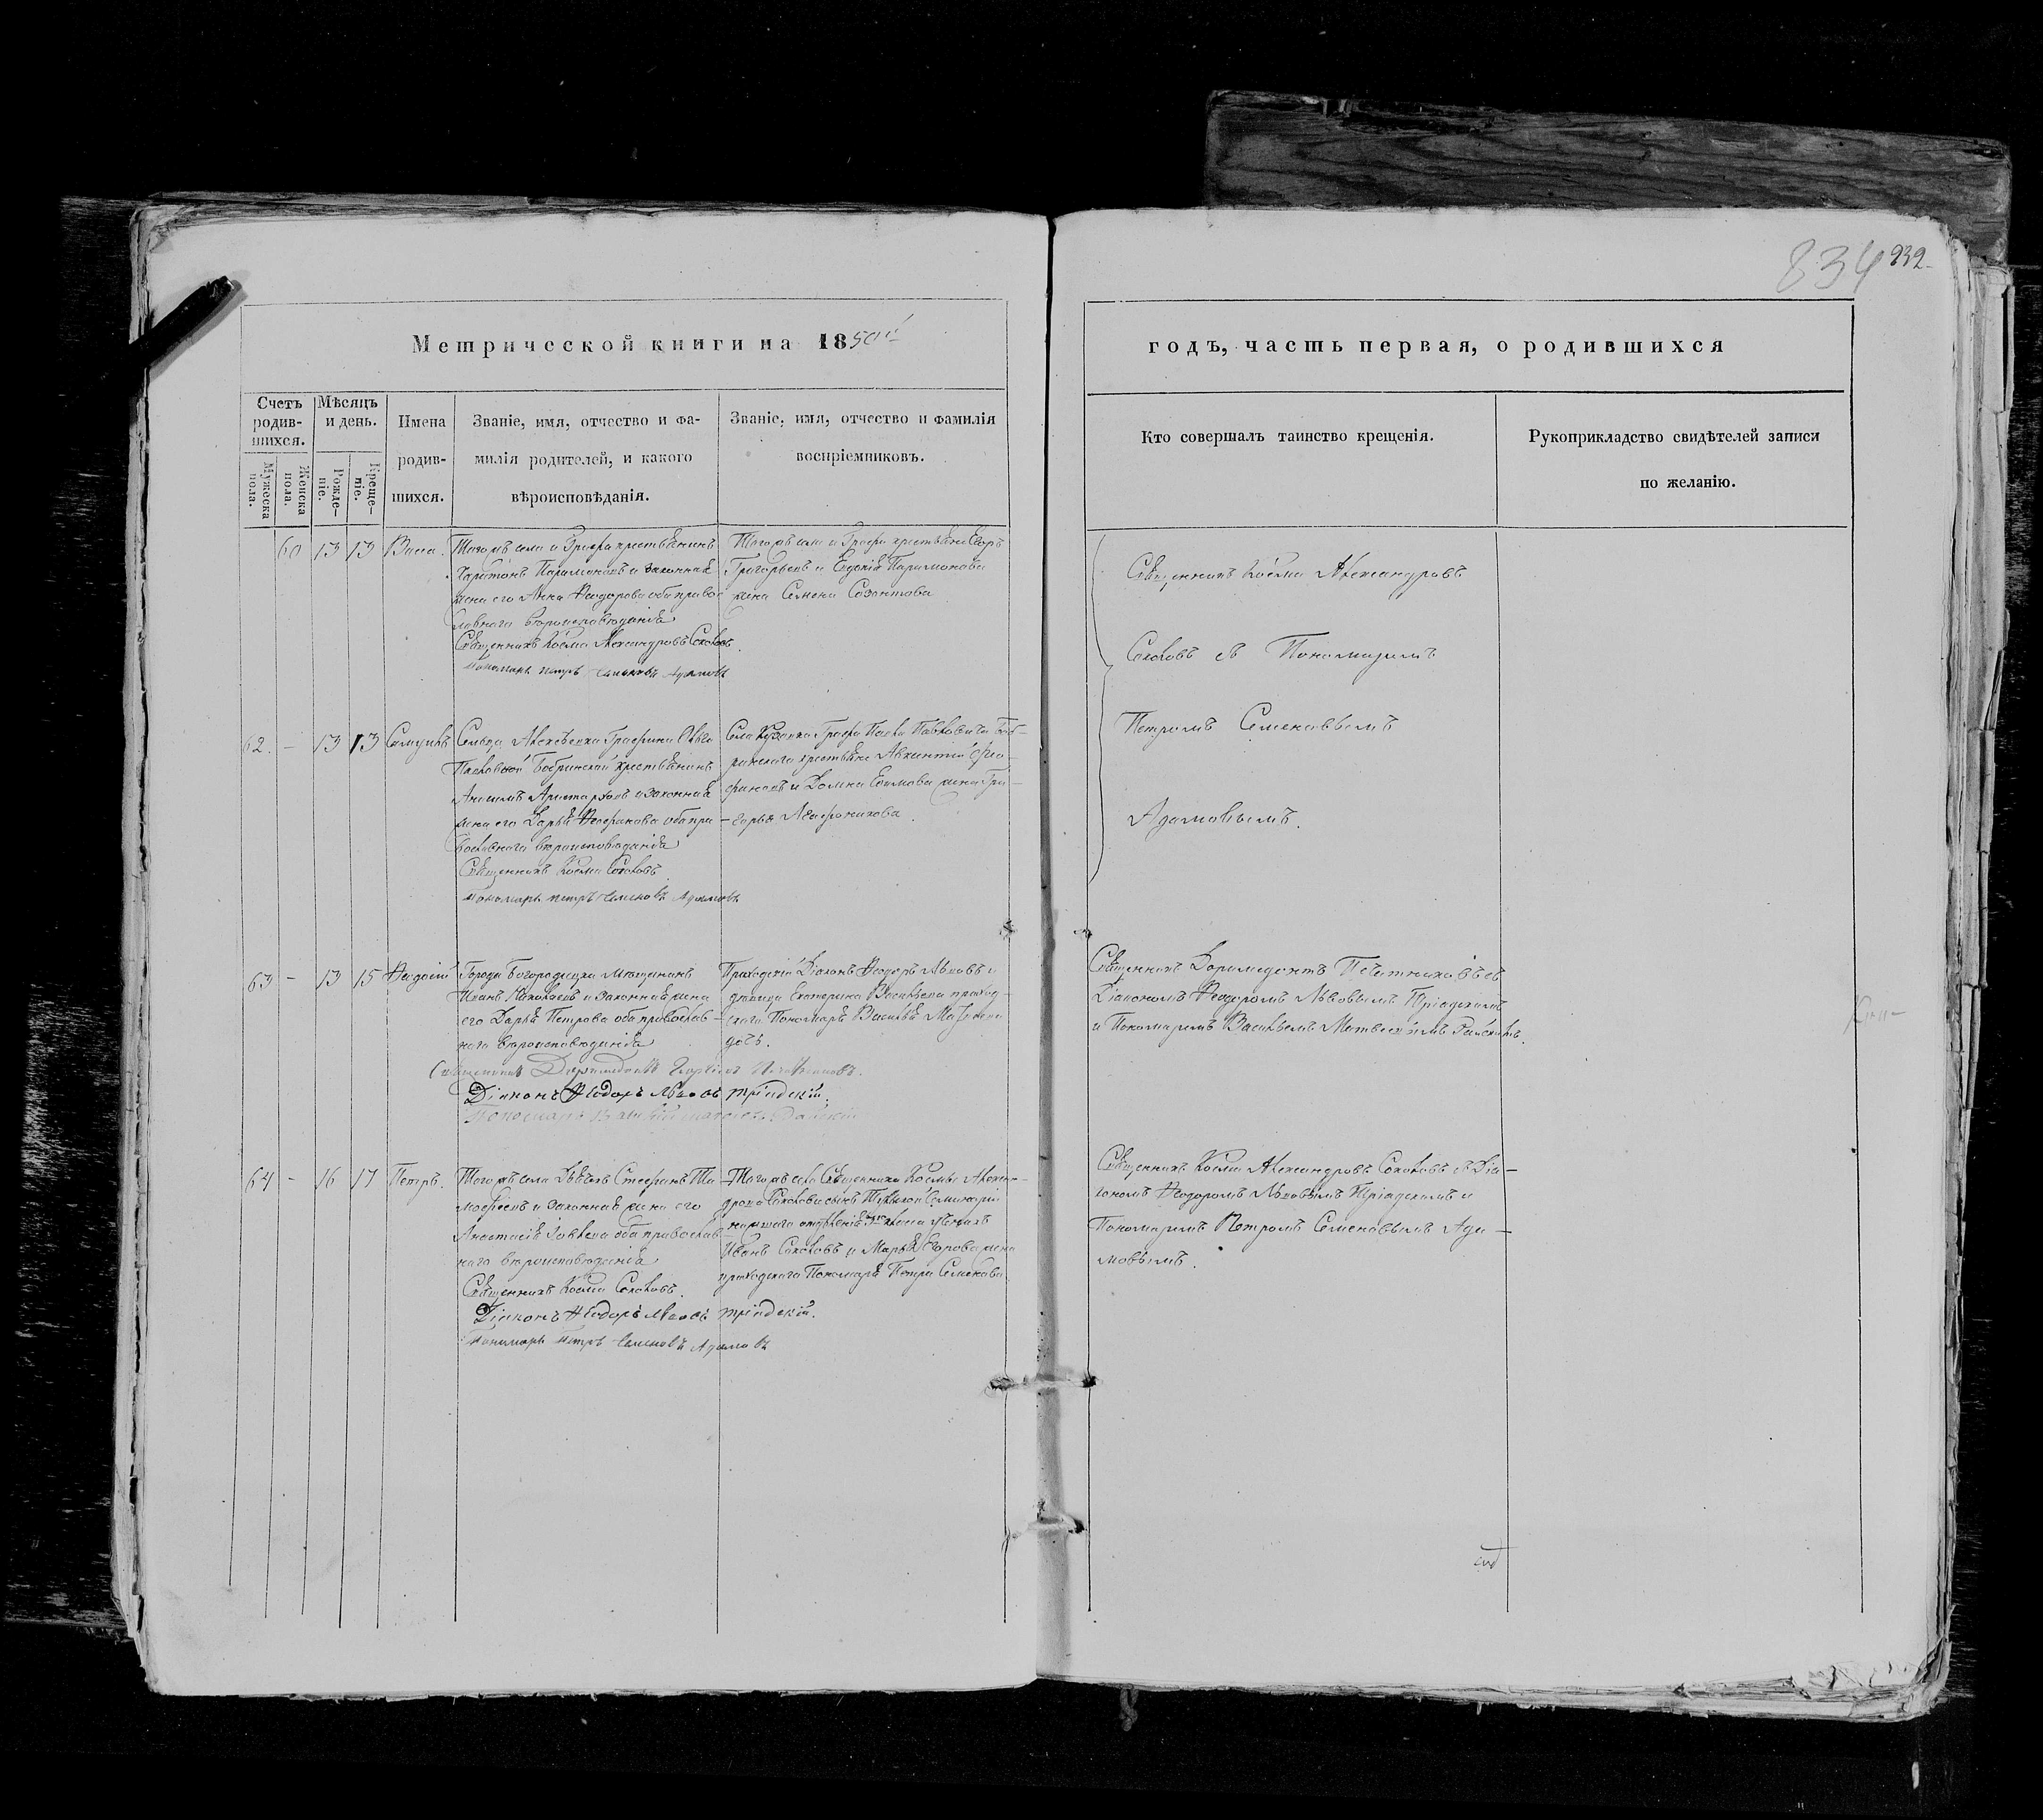 834 832
Метрической книги на 1850й
годъ, часть первая, о родившихся
Счетъ родив-шихся.
Мужеска пола.
Женска пола.
Мѣсяцъ и день.
Рожде-ніе.
Креще-ніе.
Имена
родив-
шихся.
Званіе, имя, отчество и фа-
милія родителей, и какого
вѣроисповѣданія.
Званіе, имя, отчество и фамилія
воспріемниковъ.
Кто совершалъ таинство крещенія.
Рукоприкладство свидѣтелей записи
по желанію.
60 13 13 Васса.
Тогожъ села и Графа крестьянинъ
Харитонъ Парамоновъ и законная
жена его Анна Ѳеодорова оба право
славнаго вѣроисповѣданія
Священникъ Косма Александровъ Соколовъ.
Пономарь Петръ Семеновъ Адамовъ
Тогожъ села и Графа крестьяне Егоръ
Григорьевъ и Евдокія Парамонова
жена Семена Созонтова
Священникъ Косма Александровъ
Соколовъ съ Пономаремъ
Петромъ Семеновымъ
Адамовымъ.
62. – 13 13 Самуилъ
Сельца Алексѣевки Графини
Павловной Бобринской крестьянинъ
Анисимъ Аристарховъ и законная
жена его Дарья оба пра
вославнаго вѣроисповѣданія
Священникъ Косма Соколовъ
Пономарь Петръ Семеновъ Адамовъ
Села Графа Павловича Боб-
ринскаго крестьяне Авксентій
и Домна Ефимова жена Гри-
горья Агафоникова.
63 – 13 15 Ѳеодосій
Города Богородицка мѣщанинъ
Иванъ Николаевъ и законная жена
его Дарья Петрова оба православ-
наго вѣроисповѣданія
Священникъ
Діаконъ Ѳеодоръ Львовъ Тріадскій.
Пономарь Василій Райскій
Приходскій Діаконъ Ѳеодоръ Львовъ и
дѣвица Екатерина Васильева приход-
скаго Пономаря Василья Матвѣева
дочь.
Священникъ Доримедонтъ съ
Діакономъ Ѳеодоромъ Львовымъ Тріадскимъ
и Пономаремъ Васильемъ Матвеевымъ Райскимъ.
64 – 16 17 Петръ.
Тогожъ села Стефанъ Ти-
мофеевъ и законная жена его
Анастасія Іовлева оба православ-
наго вѣроисповѣданія
Священникъ Косма Соколовъ.
Діаконъ Ѳеодоръ Львовъ Тріадскій.
Пономарь Петръ Семеновъ Адамовъ
Тогожъ села Священника Космы Алексан-
дрова Соколова сынъ Тульской Семинаріи
низшаго отдѣленія ученикъ
Иванъ Соколовъ и Марья Егорова жена
приходскаго Пономаря Петра Семенова.
Священникъ Косма Александровъ Соколовъ съ Діа-
кономъ Ѳеодоромъ Львовымъ Тріадскимъ и
Пономаремъ Петромъ Семеновымъ Ада-
мовымъ.